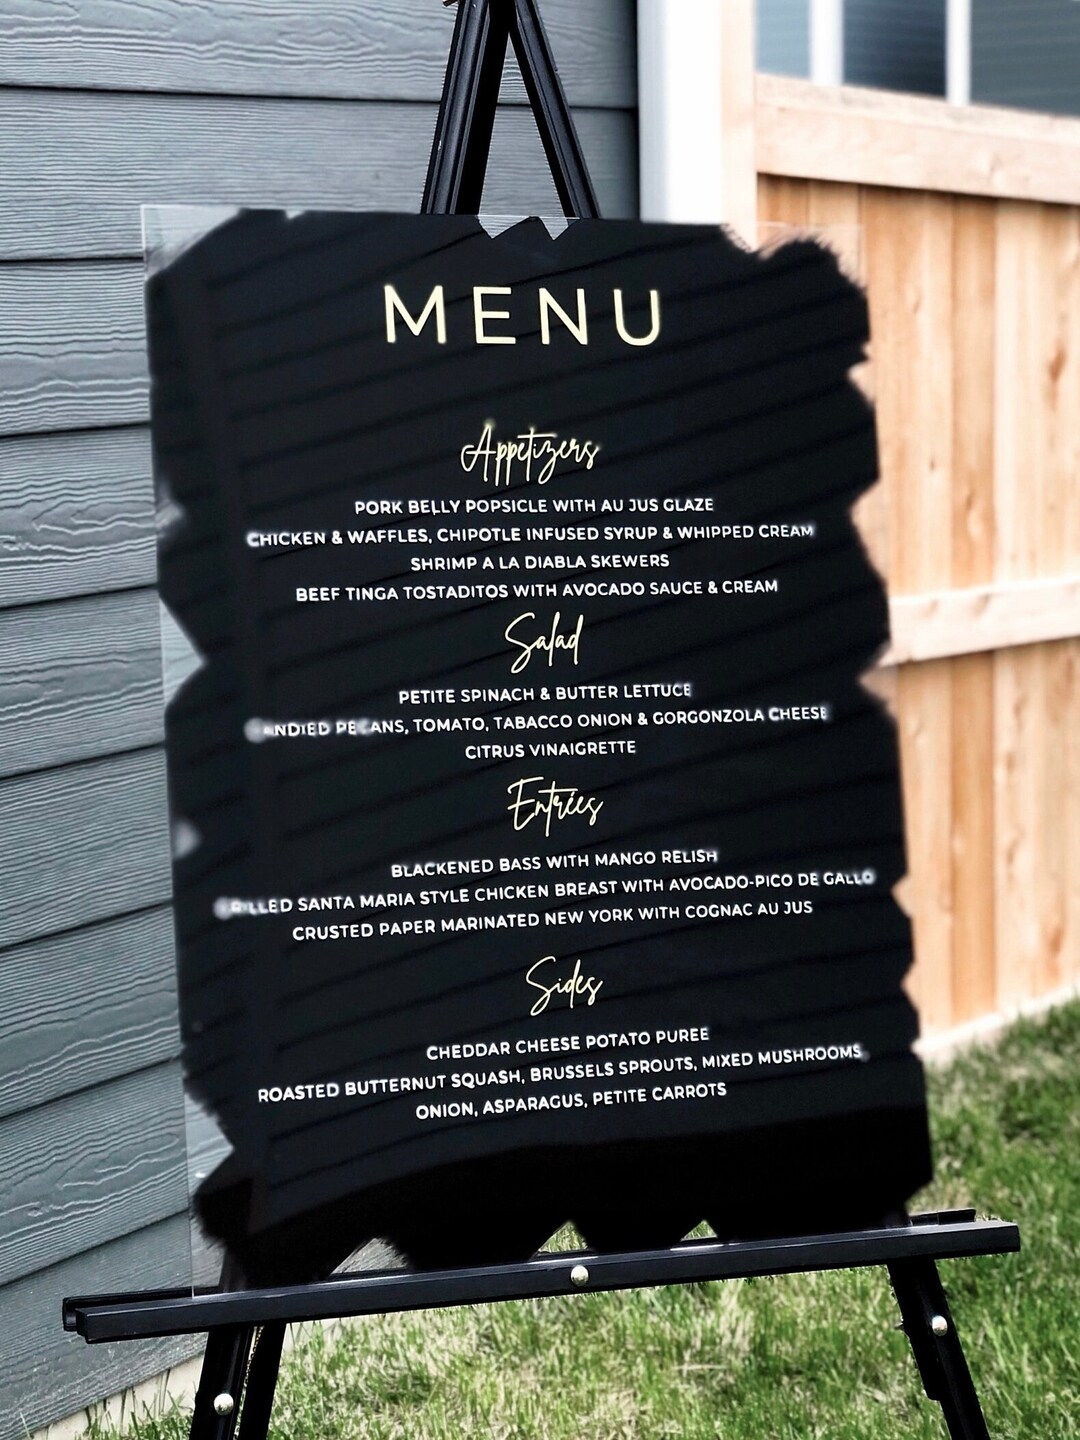 MENU
Appetizers
PORK BELLY POPSICLE WITH AU JUS GLAZE
CHICKEN & WAFFLES, CHIPOTLE INFUSED SYRUP & WHIPPED CREAM
SHRIMP A LA DIABLA SKEWERS
BEEF TINGA TOSTADITOS WITH AVOCADO SAUCE & CREAM
Salad
PETITE SPINACH & BUTTER LETTUCE
CANDIED PECANS, TOMATO, TABACCO ONION & GORGONZOLA CHEESE
CITRUS VINAIGRETTE
Entrées
BLACKENED BASS WITH MANGO RELISH
GRILLED SANTA MARIA STYLE CHICKEN BREAST WITH AVOCADO-PICO DE GALLO
CRUSTED PAPER MARINATED NEW YORK WITH COGNAC AU JUS
Sides
CHEDDAR CHEESE POTATO PUREE
ROASTED BUTTERNUT SQUASH, BRUSSELS SPROUTS, MIXED MUSHROOMS
ONION, ASPARAGUS, PETITE CARROTS